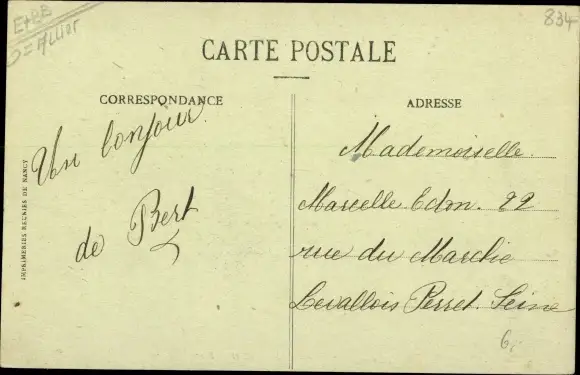 E+BB
D=Allier
834
CARTE POSTALE
CORRESPONDANCE
Un bonjour
de Bert
IMPRIMERIES REUNIES DE NANCY
ADRESSE
Mademoiselle
Marcelle Edm. 22
rue du Marche
Levallois Perret. Seine
6